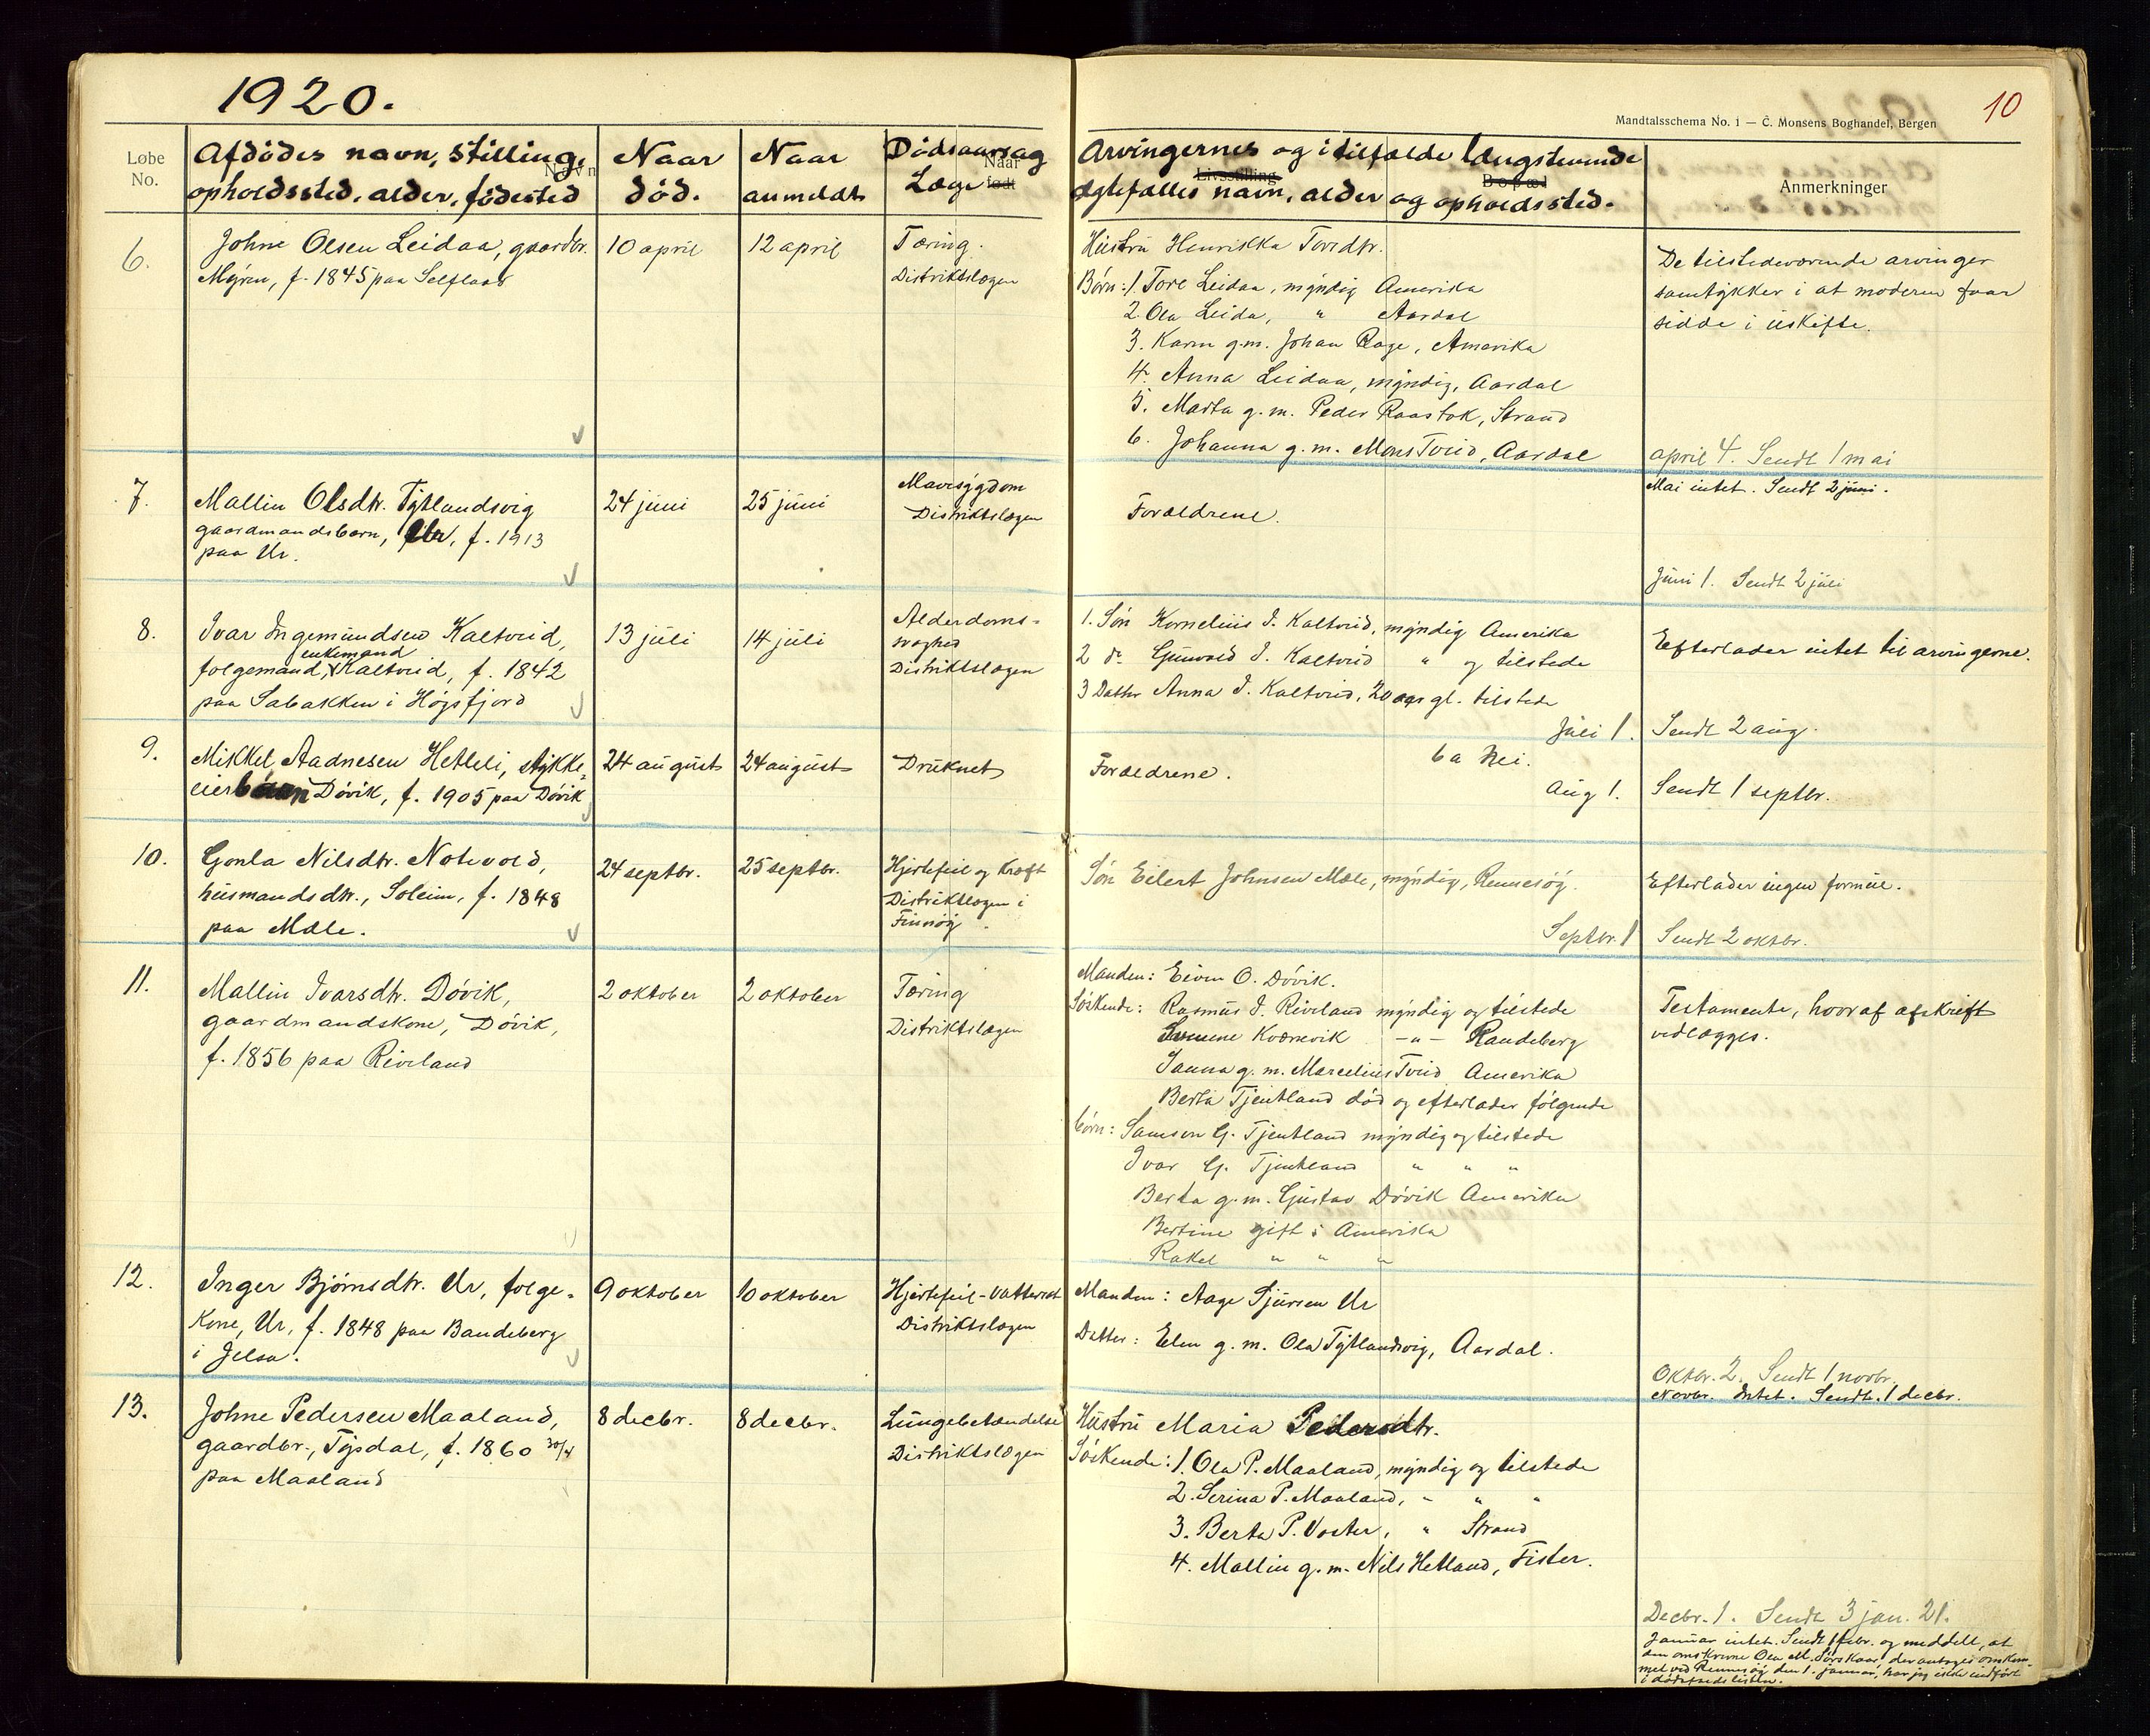 1920.
10
Mandtalsschema No. 1 — C. Monsens Boghandel, Bergen
Løbe No.
Afdødes navn, stilling,
opholdssted, alder, fødested
Navn
Naar død.
Naar anmeldt
Dødsaarsag
Læge
Naar født
Arvingernes og i tilfælde længstlevende
ægtefælles navn, alder og opholdssted.
Livsstilling
Bopæl
Anmerkninger
6.
Johne Olsen Leidaa, gaardbr.
Myren, f. 1845 paa Selflaat
10 april
12 april
Tæring.
Distriktslægen
Hustru Henrikka Toredtr.
Børn: 1. Tore Leidaa, myndig Amerika
2. Ola Leida, " Aardal
3. Karen g.m. Johan Rage, Amerika
4. Anna Leidaa, myndig, Aardal
5. Marta g.m. Peder Raastok, Strand
6. Johanna g.m. Mons Tveid, Aardal
De tilstedeværende arvinger
samtykker i at moderen faar
sidde i uskifte.
april 4. Sendt 1 mai
Mai intet. Sendt 2 juni.
7.
Mallin Olsdtr. Tytlandsvig
gaardmandsbarn, Ur, f. 1913
paa Ur.
24 juni
25 juni
Mavesygdom
Distriktslægen
Forældrene.
Juni 1. Sendt 2 juli
8.
Ivar Ingemundsen Kaltveid,
enkemand
folgemand, Kaltveid, f. 1842
paa Sabakken i Høgsfjord
13 juli
14 juli
Alderdoms-
svaghed
Distriktslægen
1. Søn Kornelius I. Kaltveid, myndig Amerika
2 do Gunvald I. Kaltveid " og tilstede
3 Datter Anna I. Kaltveid, 20 aar gl. tilstede
Efterlader intet til arvingerne.
Juli 1. Sendt 2 aug.
9.
Mikkel Aadnesen Hetleli, stykke-
eierbarn Døvik, f. 1905 paa Døvik
24 august
24 august
Druknet
Forældrene.
6a Nei.
Aug 1. Sendt 1 septbr.
10.
Gonla Nilsdtr. Notevold,
husmandsdtr., Soleim, f. 1848
paa Mæle.
24 septbr.
25 septbr.
Hjertefeil og kræft
Distriktslægen i
Finnøy.
Søn Eilert Johnsen Mæle, myndig, Rennesøy.
Efterlader ingen formue.
Septbr. 1 Sendt 2 oktbr.
11.
Mallin Ivarsdtr. Døvik,
gaardmandskone, Døvik,
f. 1856 paa Riveland
2 oktober
2 oktober
Tæring
Distriktslægen
Manden: Eiven O. Døvik.
Søskende: Rasmus I. Riveland myndig og tilstede
Kvernevik -"- Randeberg
Janna g.m. Marcelius Tveid Amerika
Berta Tjentland død og efterlader følgende
børn: Samson G. Tjentland myndig og tilstede
Ivar G. Tjentland " " "
Berta g.m. Gustav Døvik Amerika
Bertine gift i Amerika
Rakel " " "
Testamente, hvoraf afskrift
vedlægges.
12.
Inger Bjørnsdtr. Ur, folge-
kone, Ur, f. 1848 paa Bandeberg
i Jelsa.
9 oktober
10 oktober
Hjertefeil - vattersot
Distriktslægen
Manden: Aage Sjursen Ur
Datter: Elen g.m. Ola Tytlandsvig, Aardal.
Oktbr. 2. Sendt 1 novbr.
Novbr. Intet. Sendt. 1 decbr.
13.
Johne Pedersen Maaland,
gaardbr., Tysdal, f. 1860 30/4
paa Maaland
8 decbr.
8 decbr.
Lungebetændelse
Distriktslægen
Hustru Maria Pedersdtr.
Søskende: 1. Ola P. Maaland, myndig og tilstede
2. Serina P. Maaland, " " "
3. Berta P. Voster, " Strand
4. Mallin g.m. Nils Hetland, Fister.
Decbr. 1. Sendt 3 jan. 21.
Januar intet. Sendt 1 febr. og meddelt, at
den omskrevne Ola M. Sørskaar, der antages omkom-
met ved Rennesøy den 1. januar, har jeg ikke indført
i dødsfaldslisten.